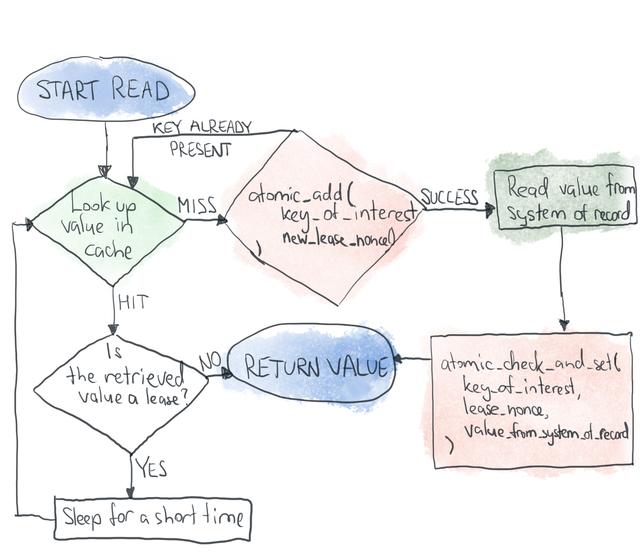 START READ
KEY ALREADY
PRESENT
Look up
value in
cache
MISS
atomic_add(
key_of_interest
new_lease_nonce)
)
SUCCESS
Read value from
system of record
HIT
Is
the retrieved
value a lease?
NO
RETURN VALUE
atomic_check_and_set(
key_of_interest,
lease_nonce,
value_from_system_of_record
)
YES
Sleep for a short time